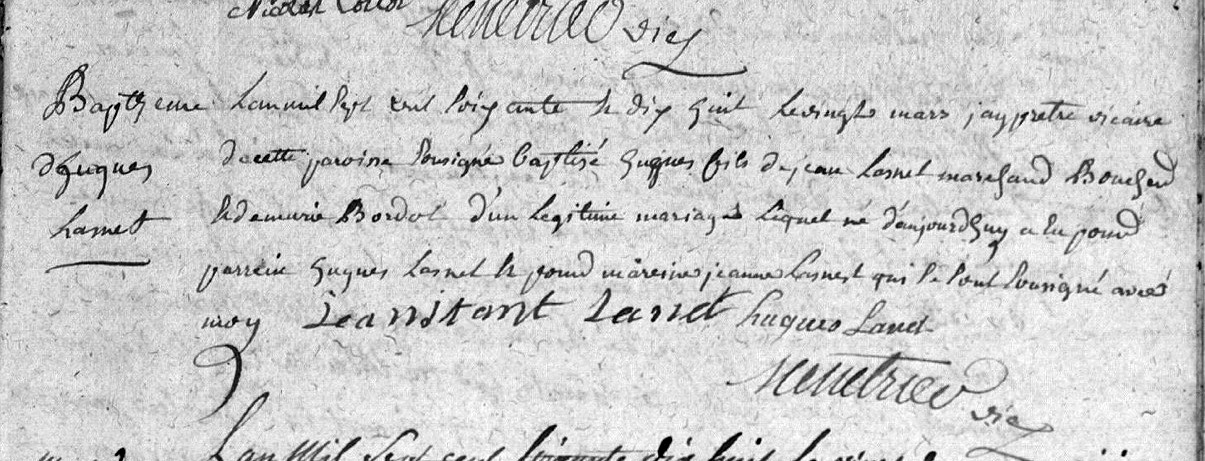 Nicolas
Menetrier vic
Baptzeme
d'hugues
Lasnet
Lan mil sept cent soixante et dix huit le vingt mars jay pretre vicaire
de cette paroisse sousigné baptisé hugues fils de jean Lasnet marchand Boucher
et de marie Bordot d'un legitime mariage lequel né d'aujourdhuy a eu pour
parrein hugues Lasnet et pour mareine jeanne Lasnest qui se sont sousigné avec
moy Lanet hugues Lanet
Menetrier vic
Lan Mil Sept cent soixante dix huit le